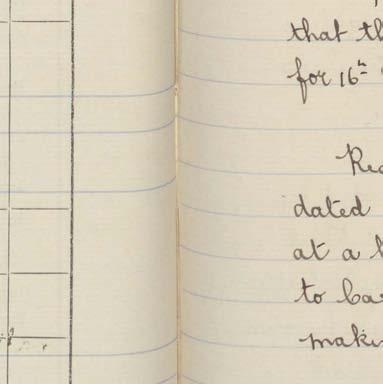 that th
for 16th
Re
dated
at a
to ba
makin